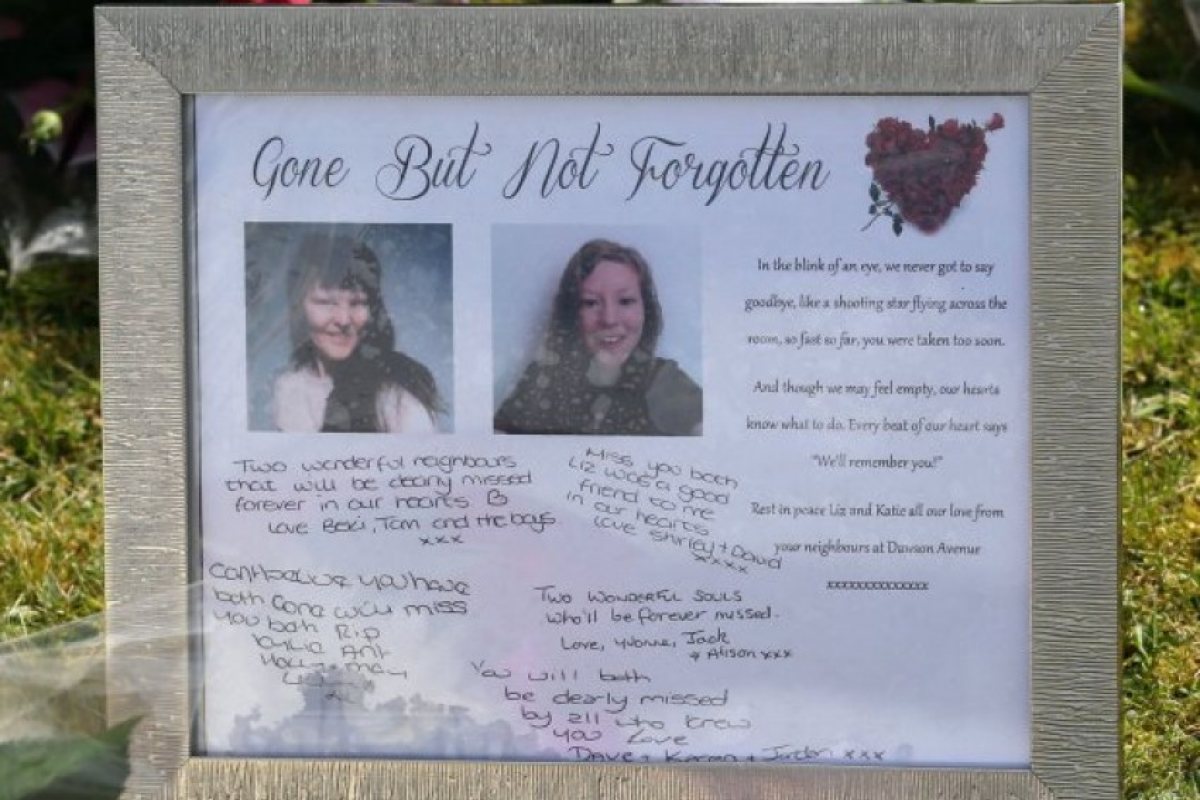 Gone But Not Forgotten
In the blink of an eye, we never got to say
goodbye, like a shooting star flying across the
room, so fast so far, you were taken too soon.
And though we may feel empty, our hearts
know what to do. Every beat of our heart says
"We'll remember you!"
Rest in peace Liz and Katie all our love from
your neighbours at Dawson Avenue
xxxxxxxxxxxxxxx
Two wonderful neighbours
that will be dearly missed
forever in our hearts
Love Becki, Tom and the boys
xxx
Miss you both
Liz was a good
friend to me
in our hearts
love Shirley + David
xxxx
Can't believe you have
both Gone will miss
you both R.i.p
Two wonderful souls
who'll be forever missed.
Love, Yvonne, Jack
+ Alison xxx
You will both
be dearly missed
by all who knew
you Love
Dave + Karen + Jordan xxx